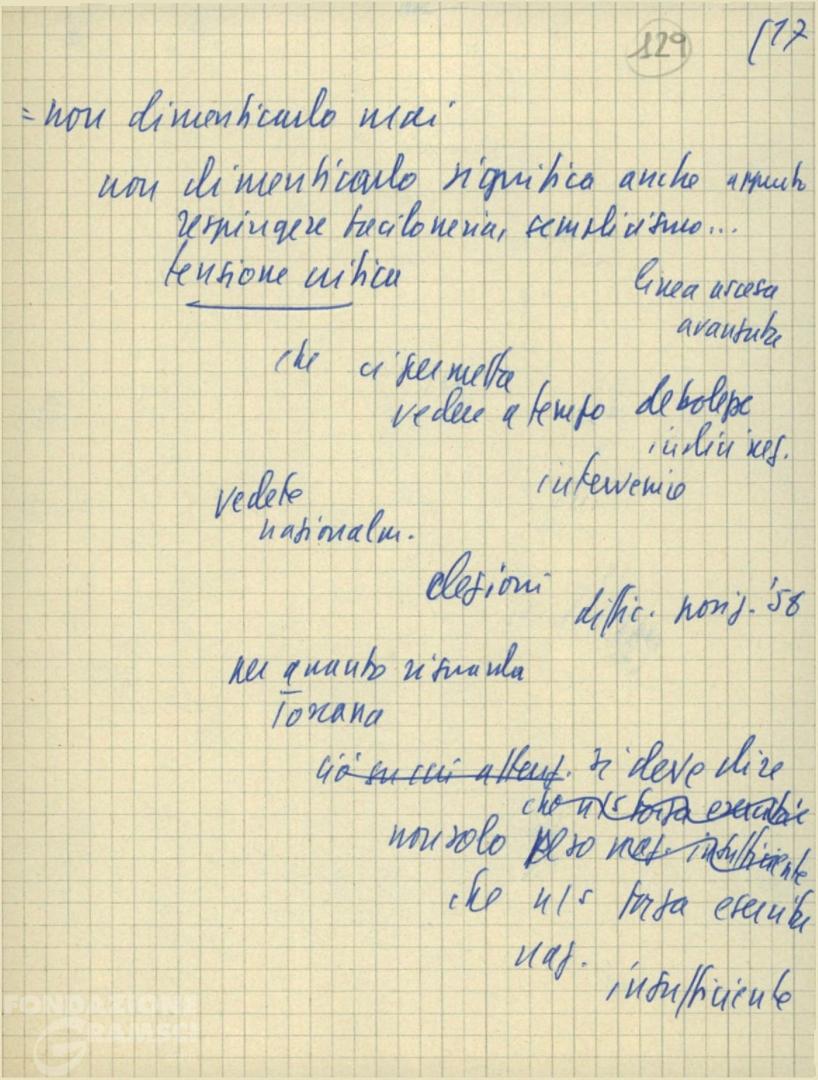 129
[17
= non dimenticarlo mai
non dimenticarlo significa anche appunto
respingere faciloneria, semplicismo...
tensione critica
linea ascesa
avanzata
che ci permetta
vedere a tempo debolezze
indici neg.
intervenire
vedete
nazionalm.
elezioni
diffic. '58
per quanto riguarda
Toscana
ciò su cui attenz. si deve dire
che n/s forza esercita
non solo peso naz. insufficiente
che n/s forza esercita
naz.
insufficiente
FONDAZIONE
GRAMSCI